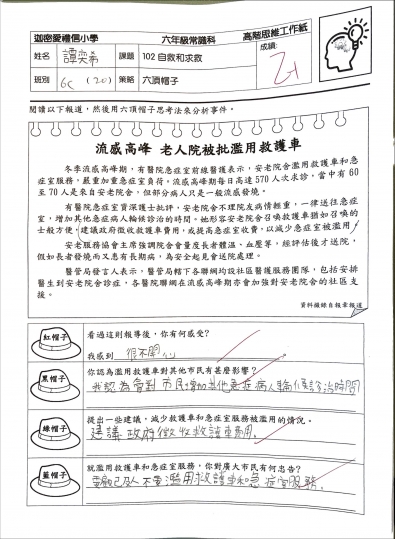 迦密愛禮信小學 六年級常識科 高階思維工作紙
姓名 譚奕希 課題 102 自救和求救 成績:
班別 6C (20) 策略 六頂帽子
閱讀以下報道,然後用六頂帽子思考法來分析事件。
流感高峰 老人院被批濫用救護車
冬季流感高峰期,有醫院急症室前線醫護表示,安老院舍濫用救護車和急
症室服務,嚴重加重急症室負荷。流感高峰期每日高達 570 人次求診,當中有 60
至 70 人是來自安老院舍,但部分病人只是一般流感發燒。
有醫院急症室資深護士批評,安老院舍不理院友病情輕重,一律送往急症
室,增加其他急症病人輪候診治的時間。她形容安老院舍召喚救護車猶如召喚的
士般方便,建議政府徵收救護車費用,或提高急症室收費,以減少急症室被濫用。
安老服務協會主席強調院舍會量度長者體溫、血壓等,經評估後才送院,
假如長者發燒而又患有長期病,為安全起見會送院處理。
醫管局發言人表示,醫管局轄下各聯網均設社區醫護服務團隊,包括安排
醫生到安老院舍診症,各醫院聯網在流感高峰期亦會加強對安老院舍的社區支
援。
資料撮錄自報章報道
紅帽子 看過這則報導後,你有何感受?
我感到 很不開心
黑帽子 你認為濫用救護車對其他市民有甚麼影響?
我認為會對市民增加其他急症病人輪候診治時間
綠帽子 提出一些建議,減少救護車和急症室服務被濫用的情況。
建議政府徵收救護車費用。
藍帽子 就濫用救護車和急症室服務,你對廣大市民有何忠告?
不要濫用救護車和急症室服務。